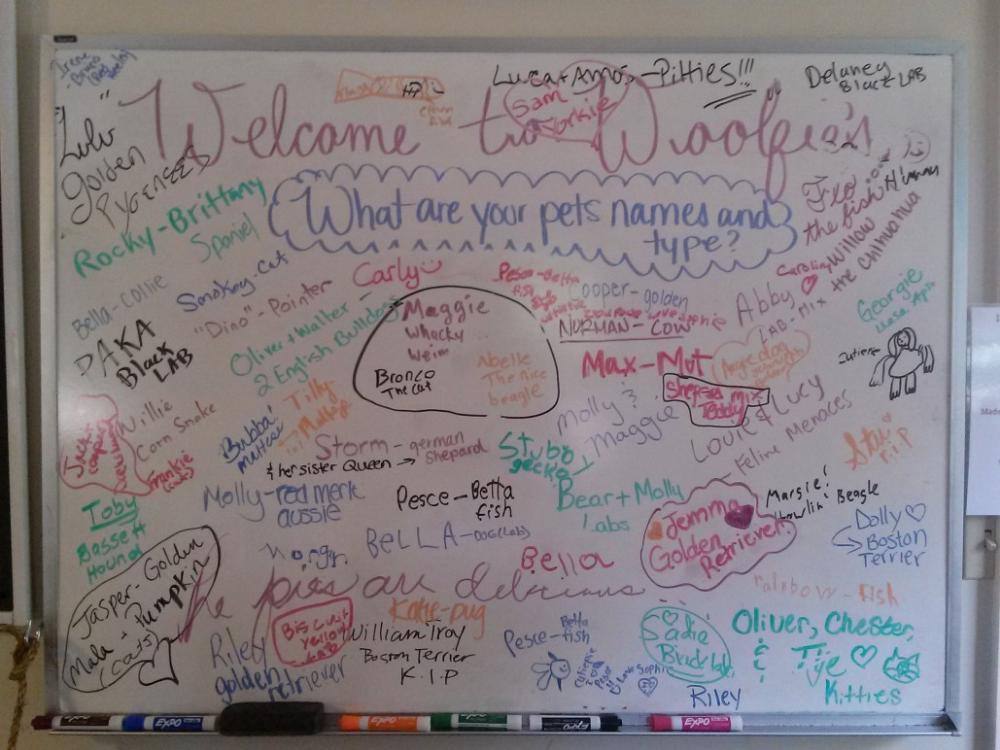 Irene
Luca + Amos - Pitties!!!
Delaney
Black LAB
Sam
Yorkie
Welcome to Woofie's
Lulu
golden
Pyrenees
What are your pets names and
type?
Rocky-Brittany
Spaniel
Flo
the fish
Willow
the chihuahua
Bella-Collie
Smokey-Cat
Carly
"Dino"-Pointer
Pesce-Betta
fish
Cooper-golden
NORMAN-COW
Caroline
Abby
LAB-mix
Georgie
DAKA
Black
LAB
Oliver + Walter-
2 English Bulldogs
Maggie
Whacky
Weim
Bronco
The Cat
Abelle
The nice
beagle
Max-Mut
Shepard mix
Teddy
Willie
Corn Snake
Frankie
(cats)
Bubba
Tilly-
Storm - german
Shepard
& her sister Queen →
Stubb
gecko
Molly &
Maggie
Louie & Lucy
- Feline Menaces
Stu
r.i.P
Toby
Bassett
Hound
Molly-red merle
aussie
Pesce-Betta
fish
Bear + Molly
Labs
Jemma
Golden
Retriever!
Margie!
Howlin' Beagle
Dolly
Boston
Terrier
BELLA-DOG (Lab)
Bella
the pies are delicious
rainbow-fish
Jasper-Golden
Mala + Pumpkin
(cats)
Riley
golden
retriever
Biscuit
Yellow
Lab
Katie-pug
William Troy
Boston Terrier
R.I.P
Pesce-Betta
fish
Love Sophie
Sadie
Black Lab
Riley
Oliver, Chester,
& Tye
Kitties
EXPO
EXPO
EXPO
EXPO
EXPO
EXPO